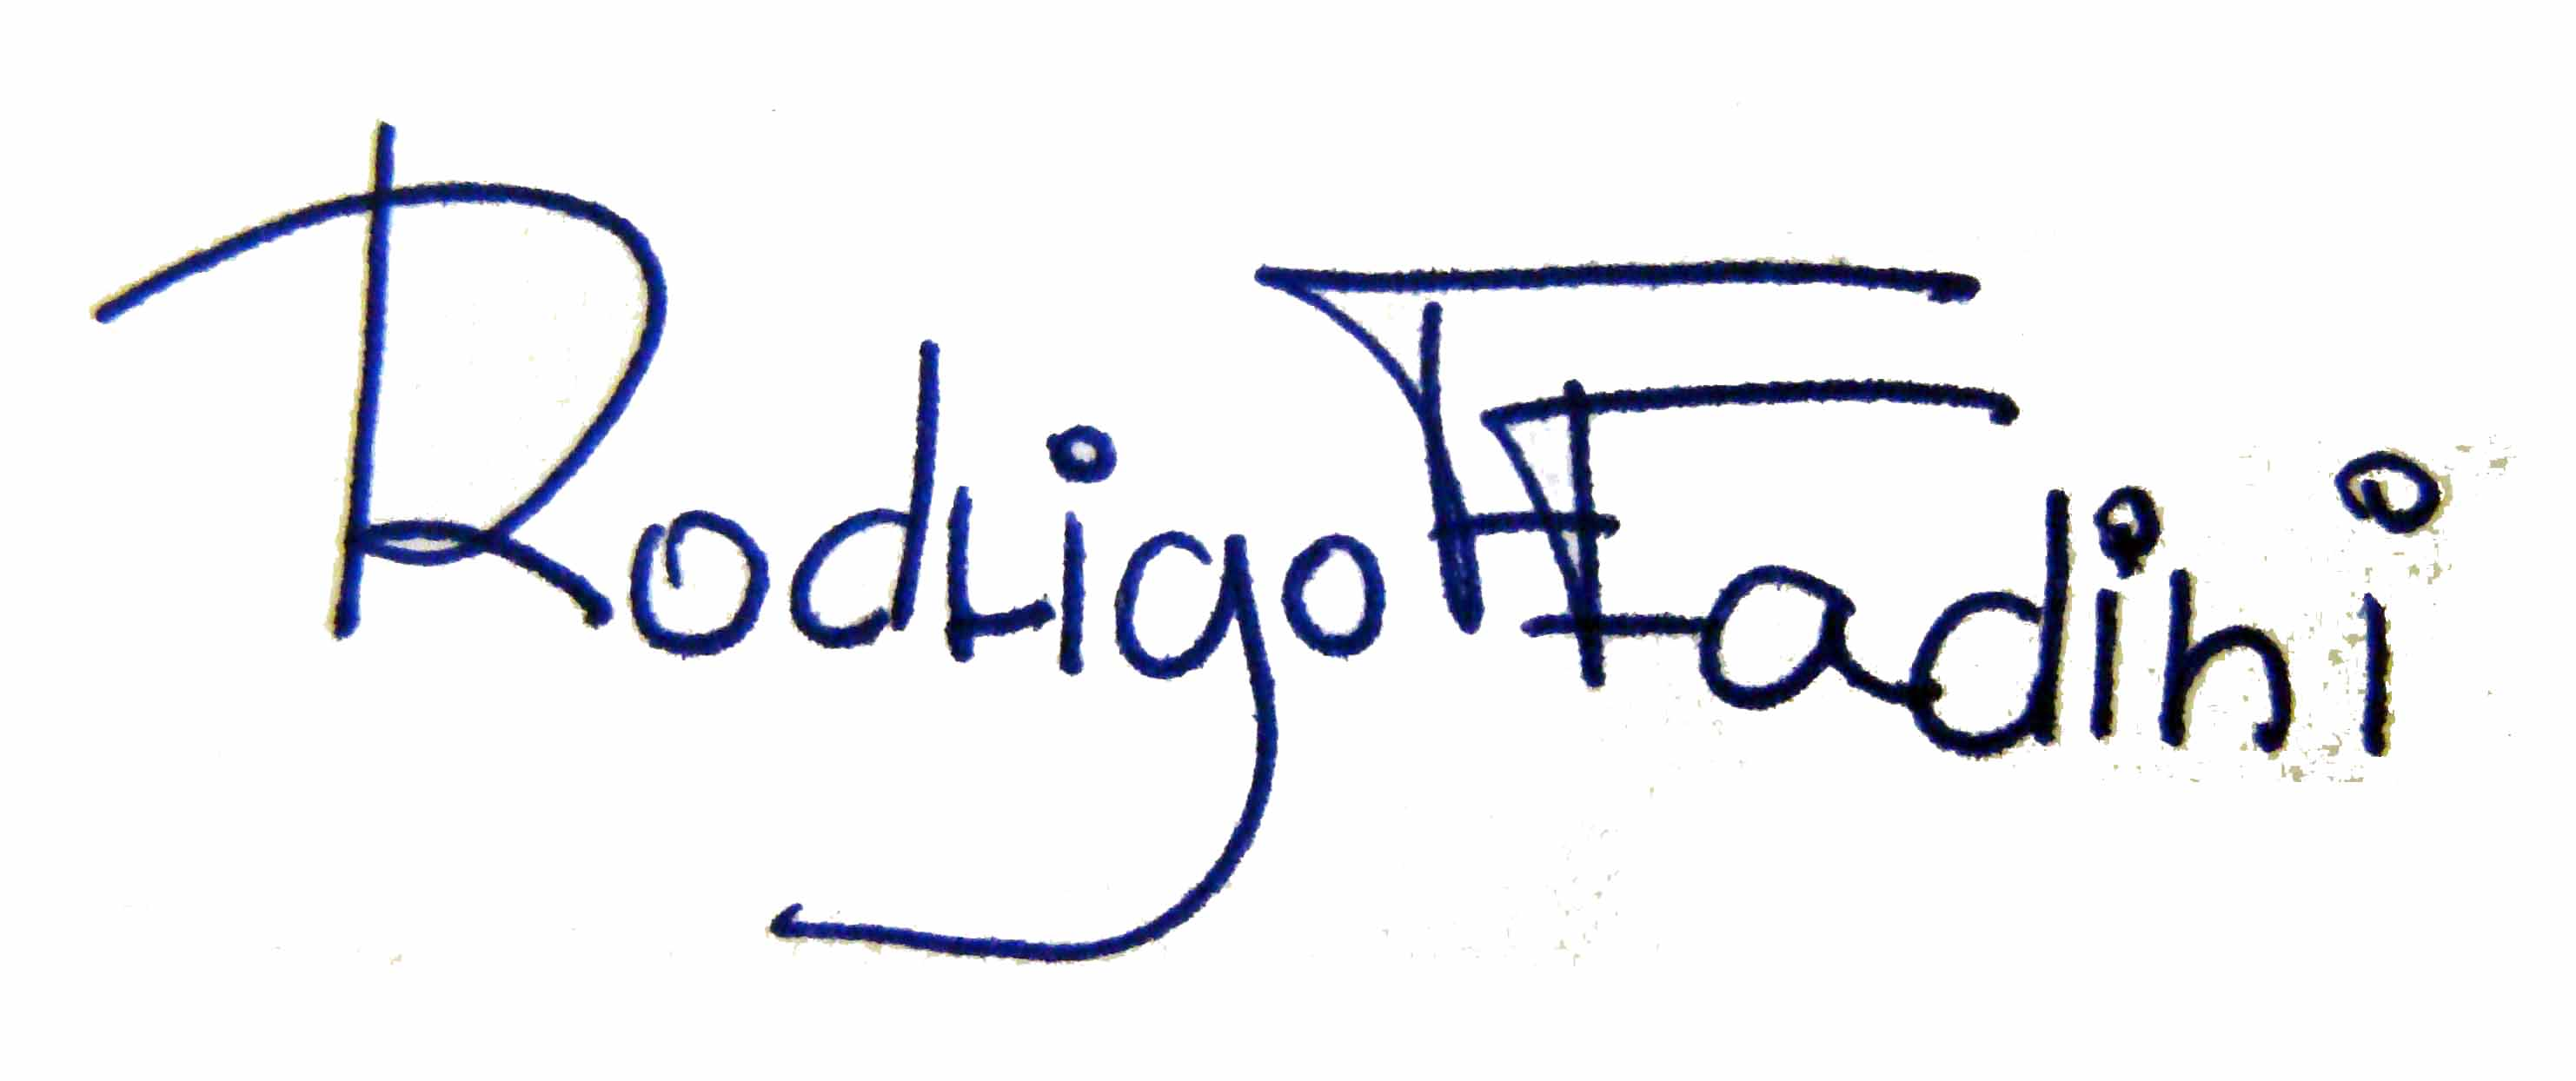 Rodrigo F Fadini